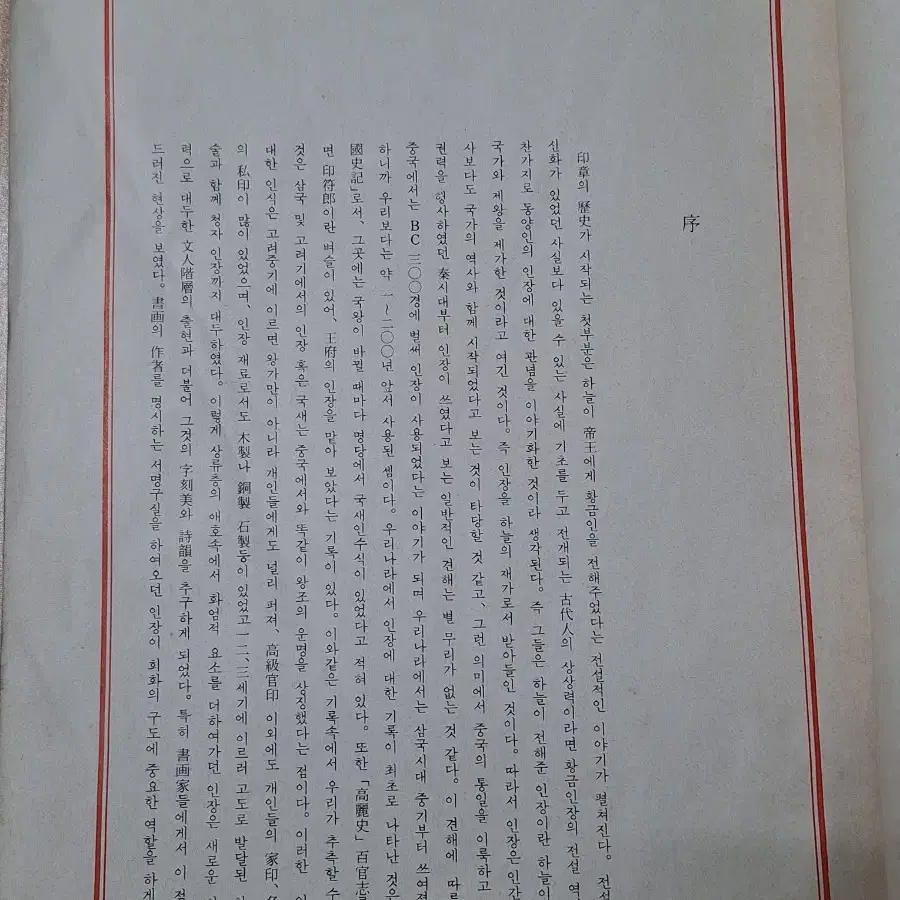 序
印章의 歷史가 시작되는 첫부분은 하늘이 帝王에게 황금인을 전해주었다는 전설적인 이야기가 펼쳐진다. 전설
신화가 있었던 사실보다 있을 수 있는 사실에 기초를 두고 전개되는 古代人의 상상력이라면 황금인장의 전설 역
찬가지로 동양인의 인장에 대한 관념을 이야기화한 것이라 생각된다. 즉 그들은 하늘이 전해준 인장이란 하늘이
국가와 제왕을 제가한 것이라고 여긴 것이다. 즉 인장을 하늘의 재가로서 받아들인 것이다. 따라서 인장은 인간
사보다도 국가의 역사와 함께 시작되었다고 보는 것이 타당할 것 같고, 그런 의미에서 중국의 통일을 이룩하고
권력을 행사하였던 秦시대부터 인장이 쓰였다고 보는 일반적인 견해는 별 무리가 없는 것 같다. 이 견해에 따르
중국에서는 BC 三○○경에 벌써 인장이 사용되었다는 이야기가 되며 우리나라에서는 삼국시대 중기부터 쓰여졌
하니까 우리보다는 약 一~二○○년 앞서 사용된 셈이다. 우리나라에서 인장에 대한 기록이 최초로 나타난 것은
國史記」로서, 그곳에는 국왕이 바뀔 때마다 명당에서 국새인수식이 있었다고 적혀 있다. 또한 「高麗史」 百官志
면 印符郞이란 벼슬이 있어, 王府의 인장을 맡아 보았다는 기록이 있다. 이와같은 기록속에서 우리가 추측할 수
것은 삼국 및 고려기에서의 인장 혹은 국새는 중국에서와 똑같이 왕조의 운명을 상징했다는 점이다. 이러한
대한 인식은 고려중기에 이르면 왕가만이 아니라 개인들에게도 널리 퍼져, 高級官印 이외에도 개인들의 家印,
의 私印이 많이 있었으며, 인장 재료로서도 木製나 銅製 石製등이 있었고 一二、三세기에 이르러 고도로 발달된
술과 함께 청자 인장까지 대두하였다. 이렇게 상류층의 애호속에서 화엄적 요소를 더하여가던 인장은 새로운
력으로 대두한 文人階層의 출현과 더불어 그것의 字刻美와 詩韻을 추구하게 되었다. 특히 書画家들에게서 이 점
드러진 현상을 보였다. 書画의 作者를 명시하는 서명구실을 하여오던 인장이 회화의 구도에 중요한 역할을 하게